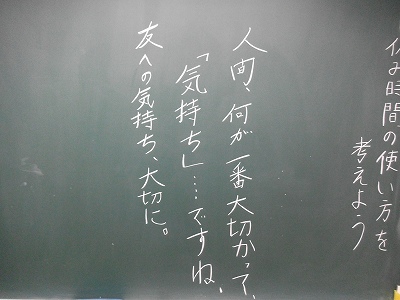 休み時間の使い方を
考えよう
人間、何が一番大切かって、
「気持ち」…ですね、
友への気持ち、大切に。